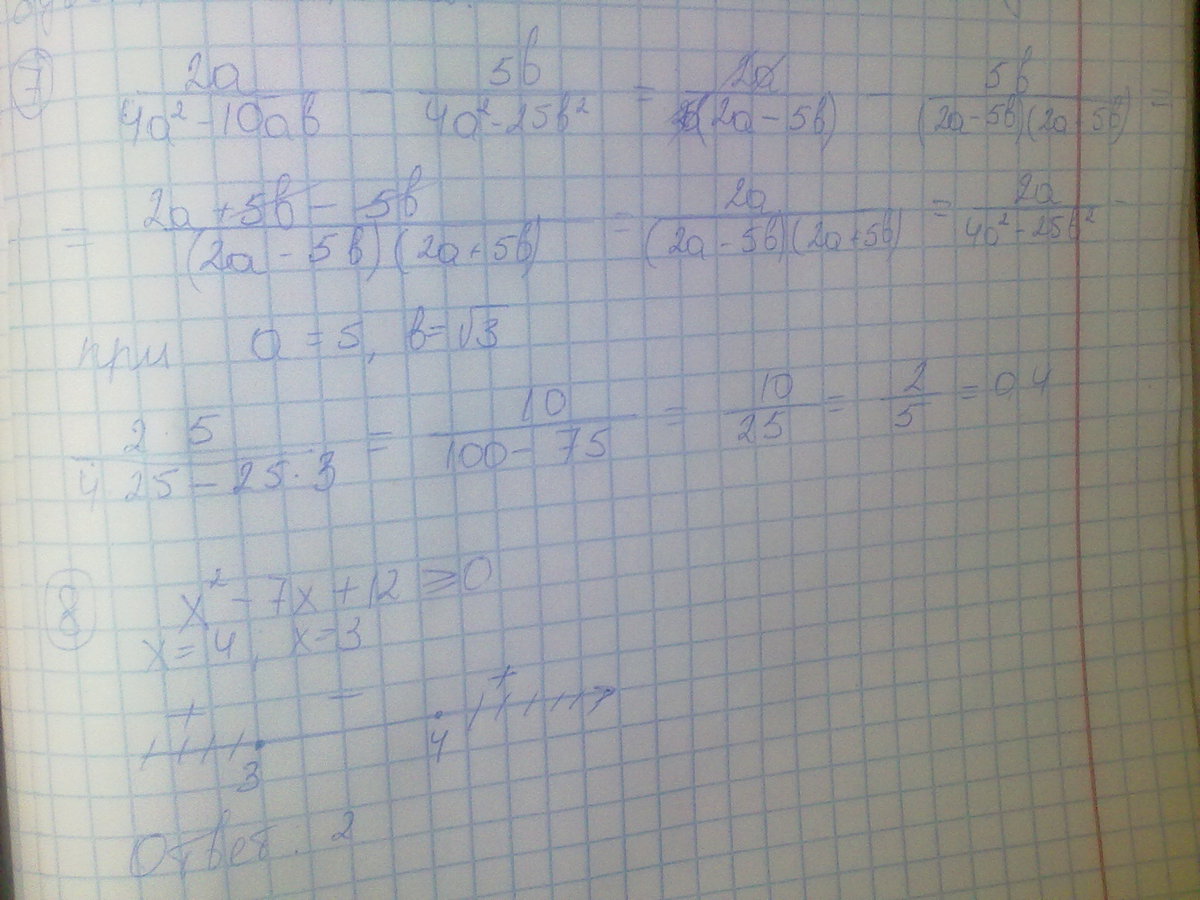 7
2a/(4a² - 10ab) - 5b/(4a² - 25b²) = 2a/(2a(2a - 5b)) - 5b/((2a - 5b)(2a + 5b)) =
= (2a + 5b - 5b)/((2a - 5b)(2a + 5b)) = 2a/((2a - 5b)(2a + 5b)) = 2a/(4a² - 25b²)
при a = 5, b = √3
2 · 5/(4 · 25 - 25 · 3) = 10/(100 - 75) = 10/25 = 2/5 = 0,4
8
x² - 7x + 12 ≥ 0
x = 4, x = 3
+ - +
3 4
Ответ: 2